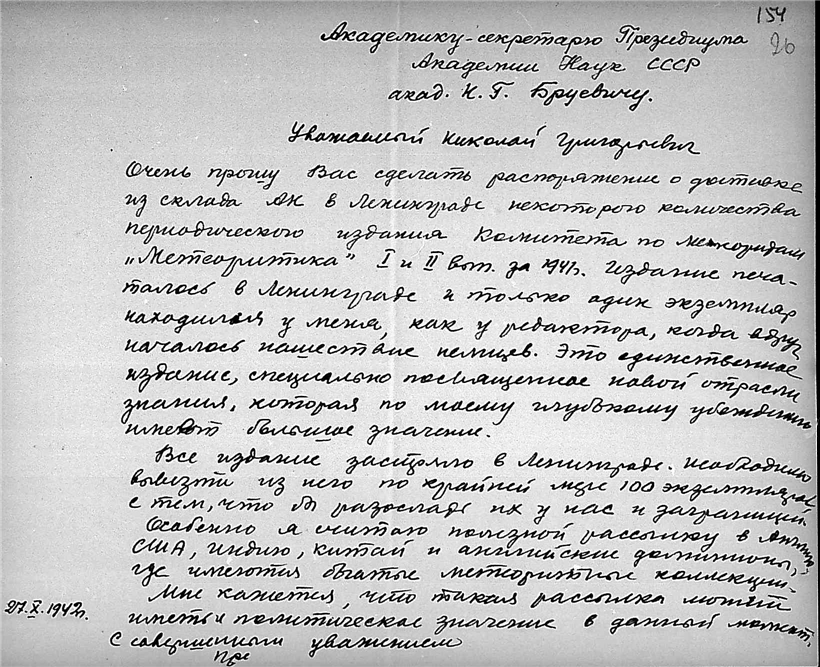 154
26
Академику-секретарю Президиума
Академии Наук СССР
акад. Н. Г. Бруевичу.
Уважаемый Николай Григорьевич
Очень прошу Вас сделать распоряжение о доставке
из склада АН в Ленинграде некоторого количества
периодического издания Комитета по метеоритам
„Метеоритика" I и II вып. за 1941г. Издание печа-
талось в Ленинграде и только один экземпляр
находился у меня, как у редактора, когда вдруг
началось нашествие немцев. Это единственное
издание, специально посвященное новой отрасли
знания, которая по моему глубокому убеждению
имеет большое значение.
Все издание застряло в Ленинграде. Необходимо
вывезти из него по крайней мере 100 экземпляров
с тем, что бы разослать их у нас и заграницей.
Особенно я считаю полезной рассылку в Англию,
США, Индию, Китай и английские доминионы,
где имеются богатые метеоритные коллекции.
Мне кажется, что такая рассылка может
иметь и политическое значение в данный момент.
27.X.1942г.
С совершенным уважением
Пре